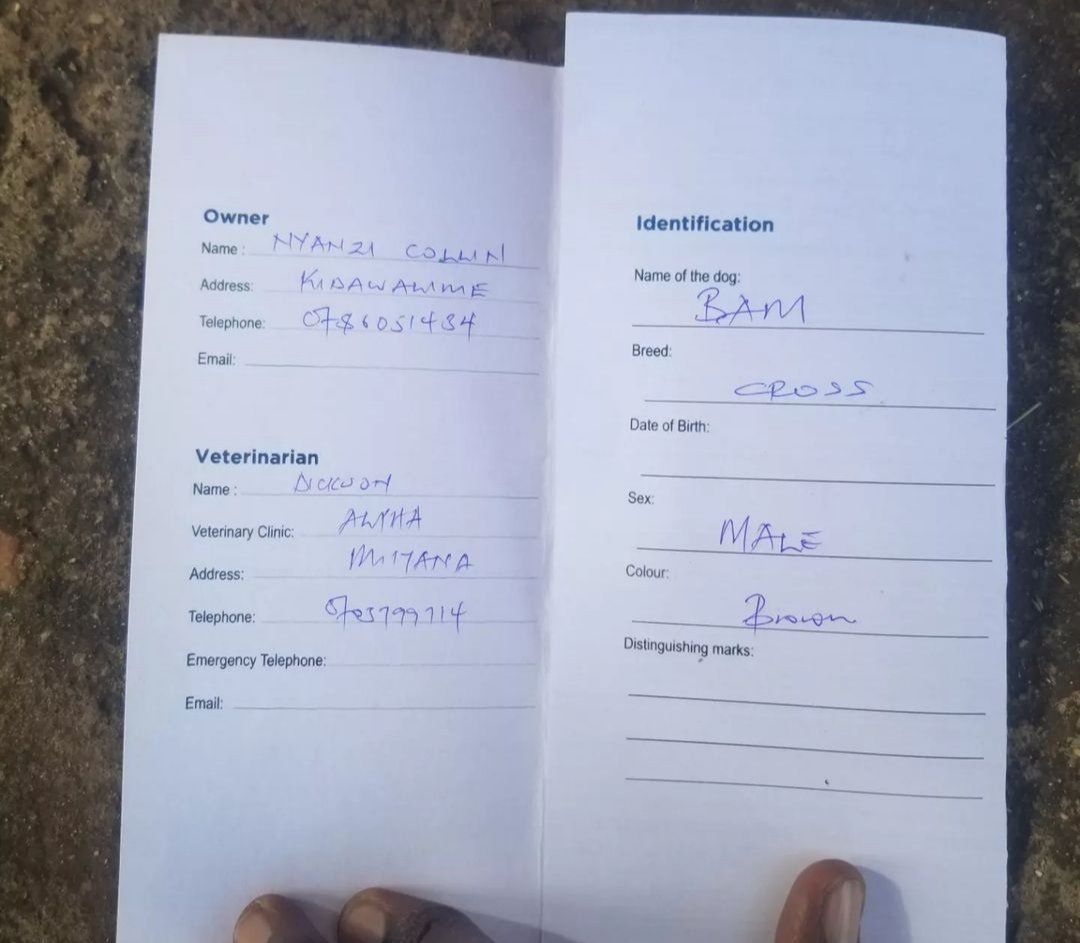 Owner
Name : NYANZI COLLIN
Address: KIBAWALIME
Telephone: 0786051434
Email:
Veterinarian
Name : DICKSON
Veterinary Clinic:
Address: MITYANA
Telephone: 0703799714
Emergency Telephone:
Email:
Identification
Name of the dog:
BAM
Breed:
CROSS
Date of Birth:
Sex:
MALE
Colour:
Brown
Distinguishing marks: